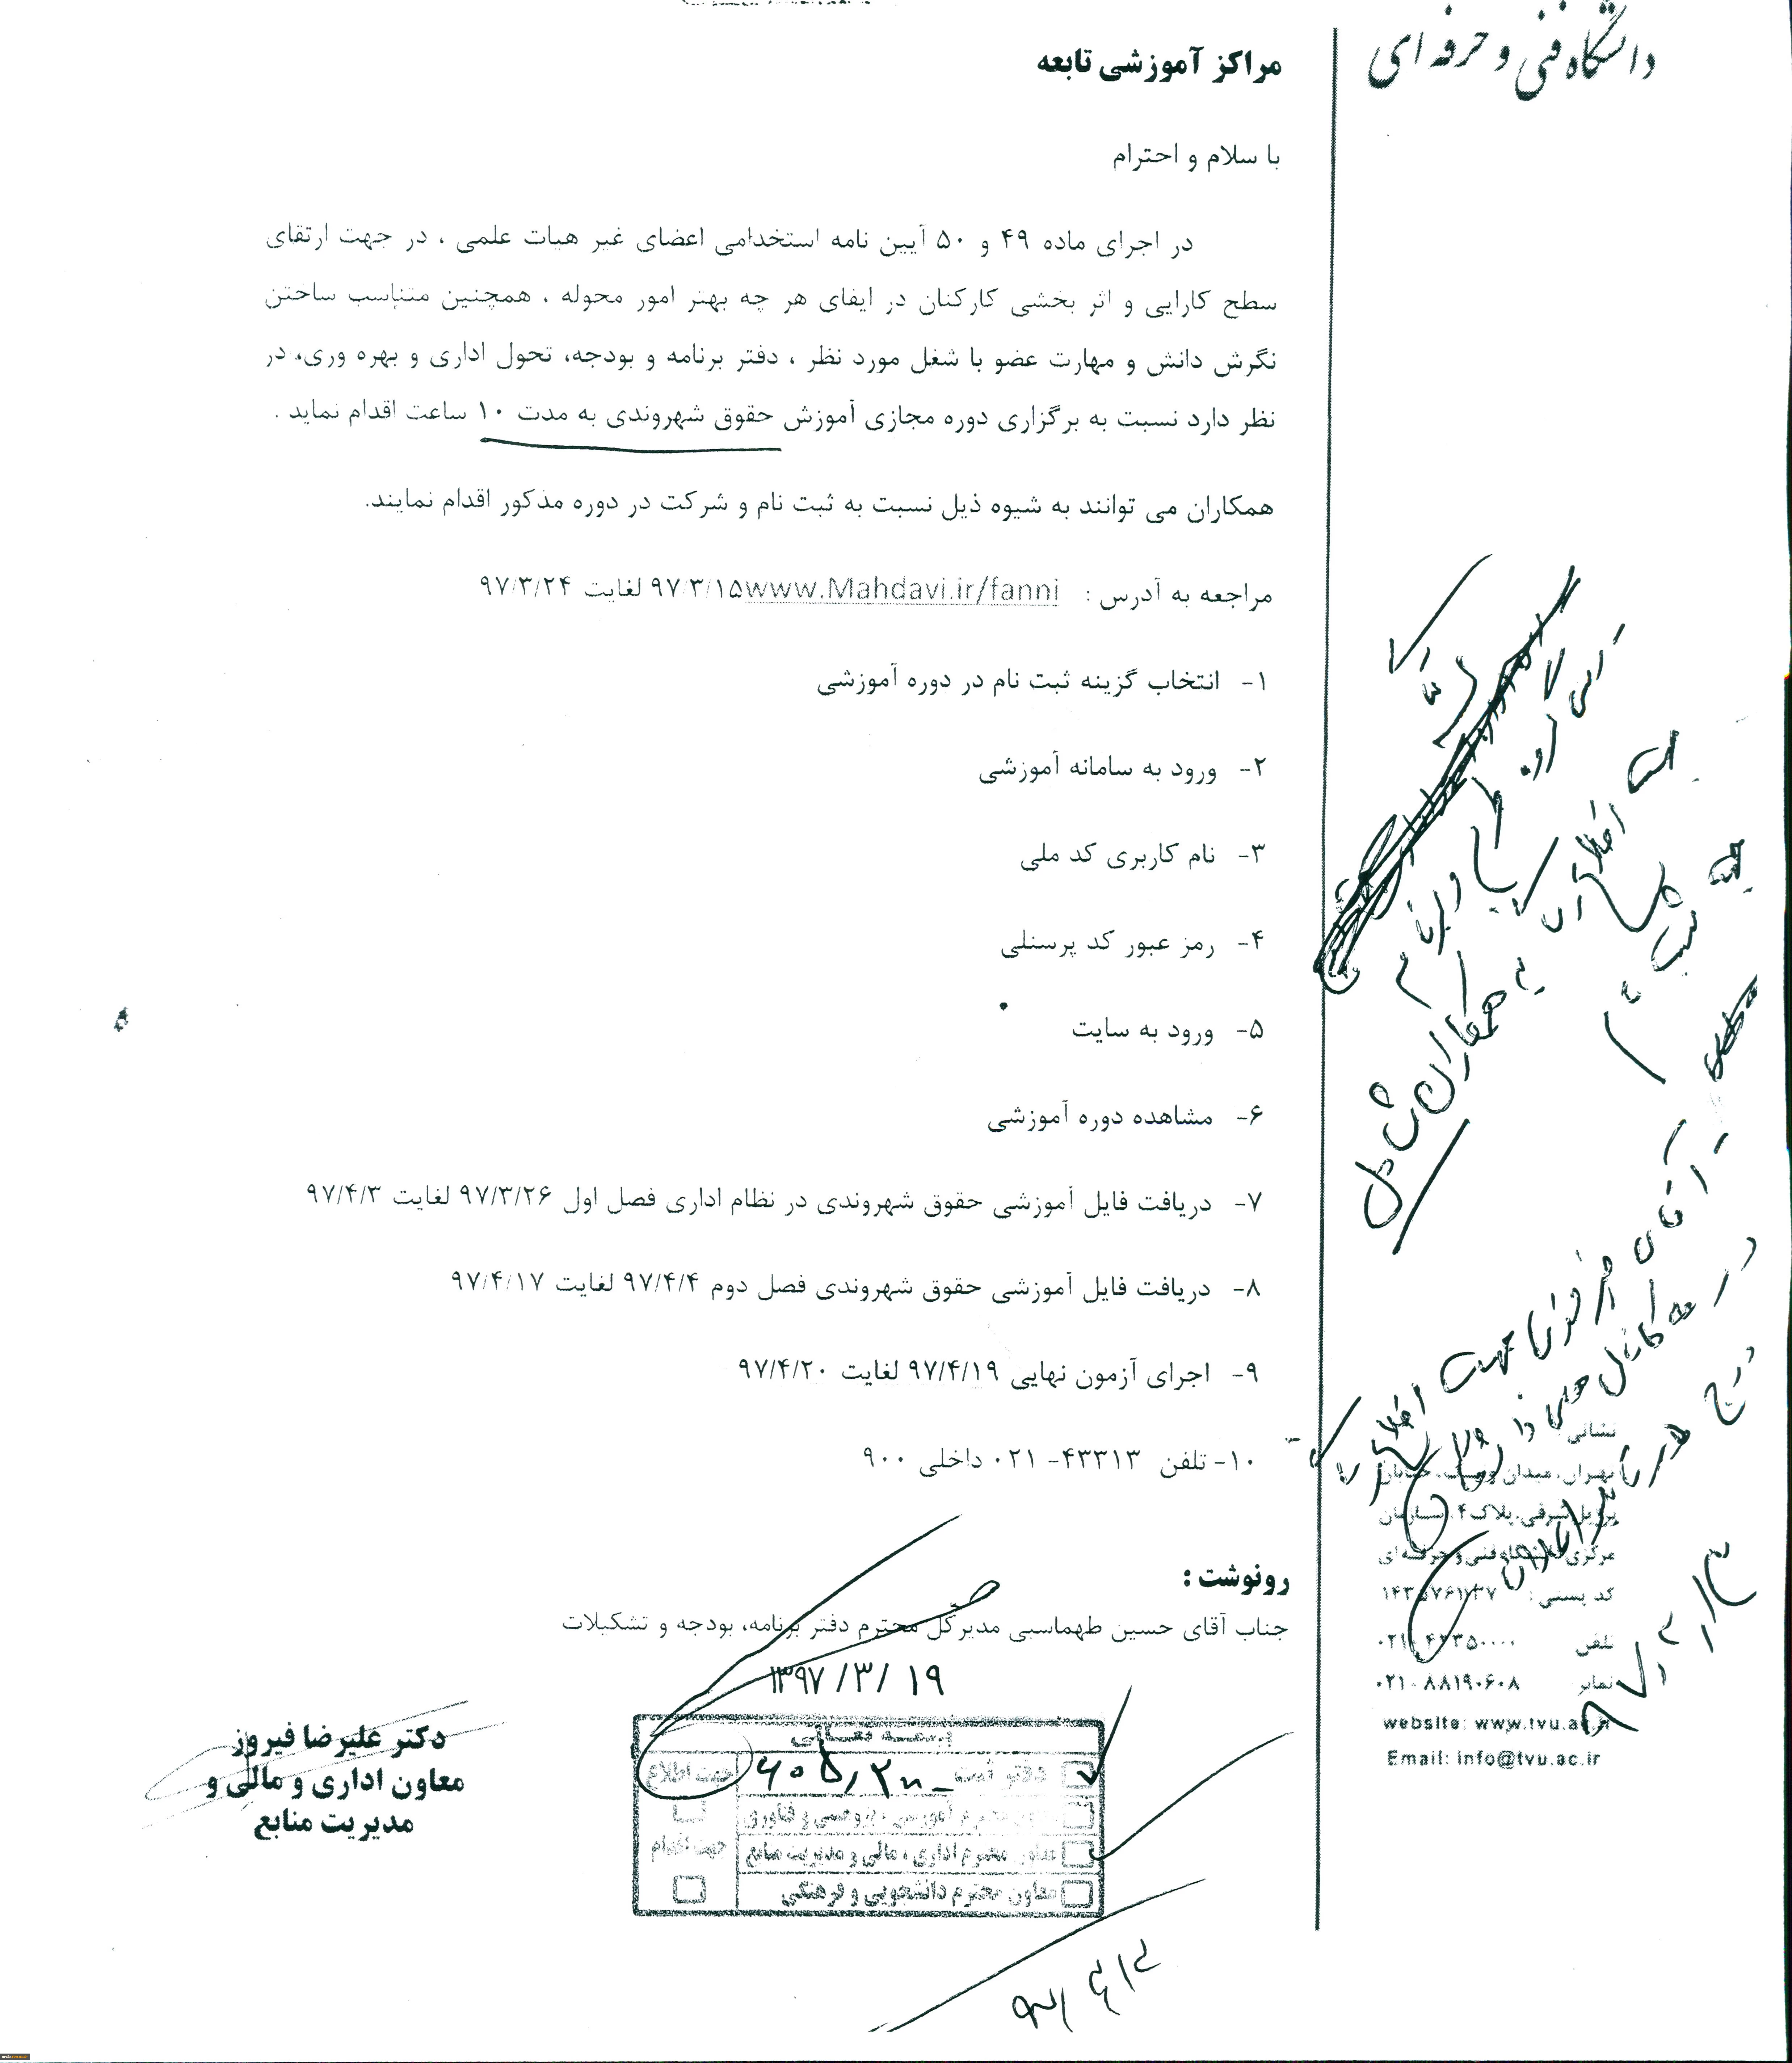 دانشگاه فنی و حرفه ای
مراکز آموزشی تابعه
با سلام و احترام
در اجرای ماده ۴۹ و ۵۰ آیین نامه استخدامی اعضای غیر هیات علمی ، در جهت ارتقای
سطح کارایی و اثر بخشی کارکنان در ایفای هر چه بهتر امور محوله ، همچنین متناسب ساختن
نگرش دانش و مهارت عضو با شغل مورد نظر ، دفتر برنامه و بودجه، تحول اداری و بهره وری، در
نظر دارد نسبت به برگزاری دوره مجازی آموزش حقوق شهروندی به مدت ۱۰ ساعت اقدام نماید .
همکاران می توانند به شیوه ذیل نسبت به ثبت نام و شرکت در دوره مذکور اقدام نمایند.
مراجعه به آدرس : www.Mahdavi.ir/fanni ۹۷/۳/۱۵ لغایت ۹۷/۳/۲۴
۱- انتخاب گزینه ثبت نام در دوره آموزشی
۲- ورود به سامانه آموزشی
۳- نام کاربری کد ملی
۴- رمز عبور کد پرسنلی
۵- ورود به سایت
۶- مشاهده دوره آموزشی
۷- دریافت فایل آموزشی حقوق شهروندی در نظام اداری فصل اول ۹۷/۳/۲۶ لغایت ۹۷/۴/۳
۸- دریافت فایل آموزشی حقوق شهروندی فصل دوم ۹۷/۴/۴ لغایت ۹۷/۴/۱۷
۹- اجرای آزمون نهایی ۹۷/۴/۱۹ لغایت ۹۷/۴/۲۰
۱۰- تلفن ۴۳۳۱۳- ۰۲۱ داخلی ۹۰۰
رونوشت :
جناب آقای حسین طهماسبی مدیرکل محترم دفتر برنامه، بودجه و تشکیلات
۱۳۹۷/۳/۱۹
بسمه تعالی
دفتر ثبت
جهت اطلاع
معاون محترم اداری ، مالی و مدیریت منابع
جهت اقدام
معاون محترم دانشجویی و فرهنگی
دکتر علیرضا فیروز
معاون اداری و مالی و
مدیریت منابع
جهت اطلاع
به همکاران
جهت ثبت نام
نشانی
تهران، میدان ونک، خیابان
برزیل شرقی، پلاک ۴، سازمان
مرکزی دانشگاه فنی و حرفه ای
کد پستی :
تلفن
نمابر ۰۲۱-۸۸۱۹۰۶۰۸
website: www.tvu.ac.ir
Email: info@tvu.ac.ir